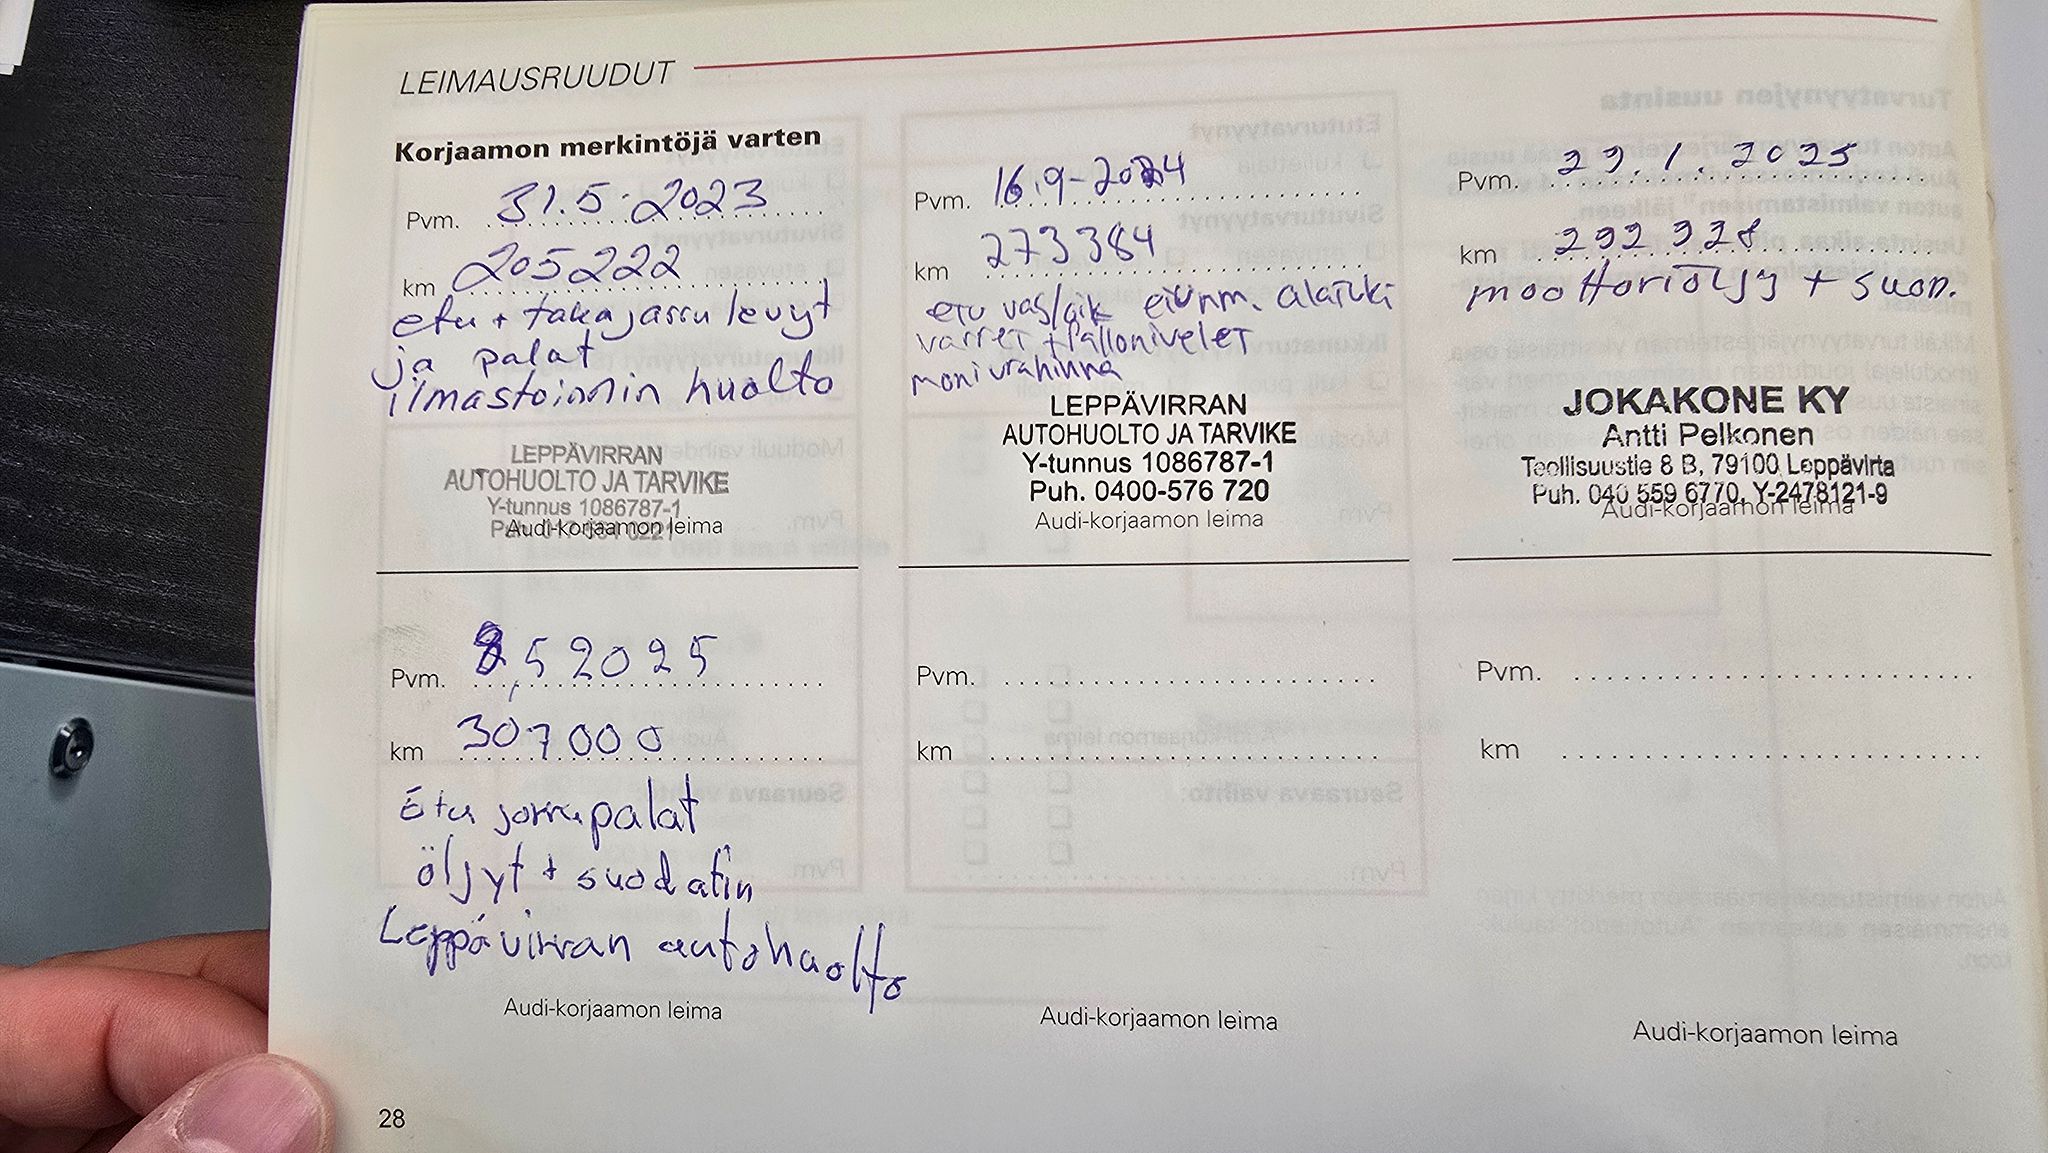 LEIMAUSRUUDUT
Korjaamon merkintöjä varten
Pvm. 31.5.2023
km 205222
etu + taka jarru levyt
ja palat
ilmastoinnin huolto
LEPPÄVIRRAN
AUTOHUOLTO JA TARVIKE
Y-tunnus 1086787-1
Puh.
Audi-korjaamon leima
Pvm. 16.9-2024
km 273384
etu vas/oik alatuki
varret + Pallonivelet
moniurahihna
LEPPÄVIRRAN
AUTOHUOLTO JA TARVIKE
Y-tunnus 1086787-1
Puh. 0400-576 720
Audi-korjaamon leima
Pvm. 29.1.2025
km 292928
moottoriöljy + suod.
JOKAKONE KY
Antti Pelkonen
Teollisuustie 8 B, 79100 Leppävirta
Puh. 040 559 6770, Y-2478121-9
Audi-korjaamon leima
Pvm. 8,5 2025
km 307000
Etu jarrupalat
öljyt + suodatin
Leppävirran autohuolto
Audi-korjaamon leima
Pvm.
km
Audi-korjaamon leima
Pvm.
km
Audi-korjaamon leima
28